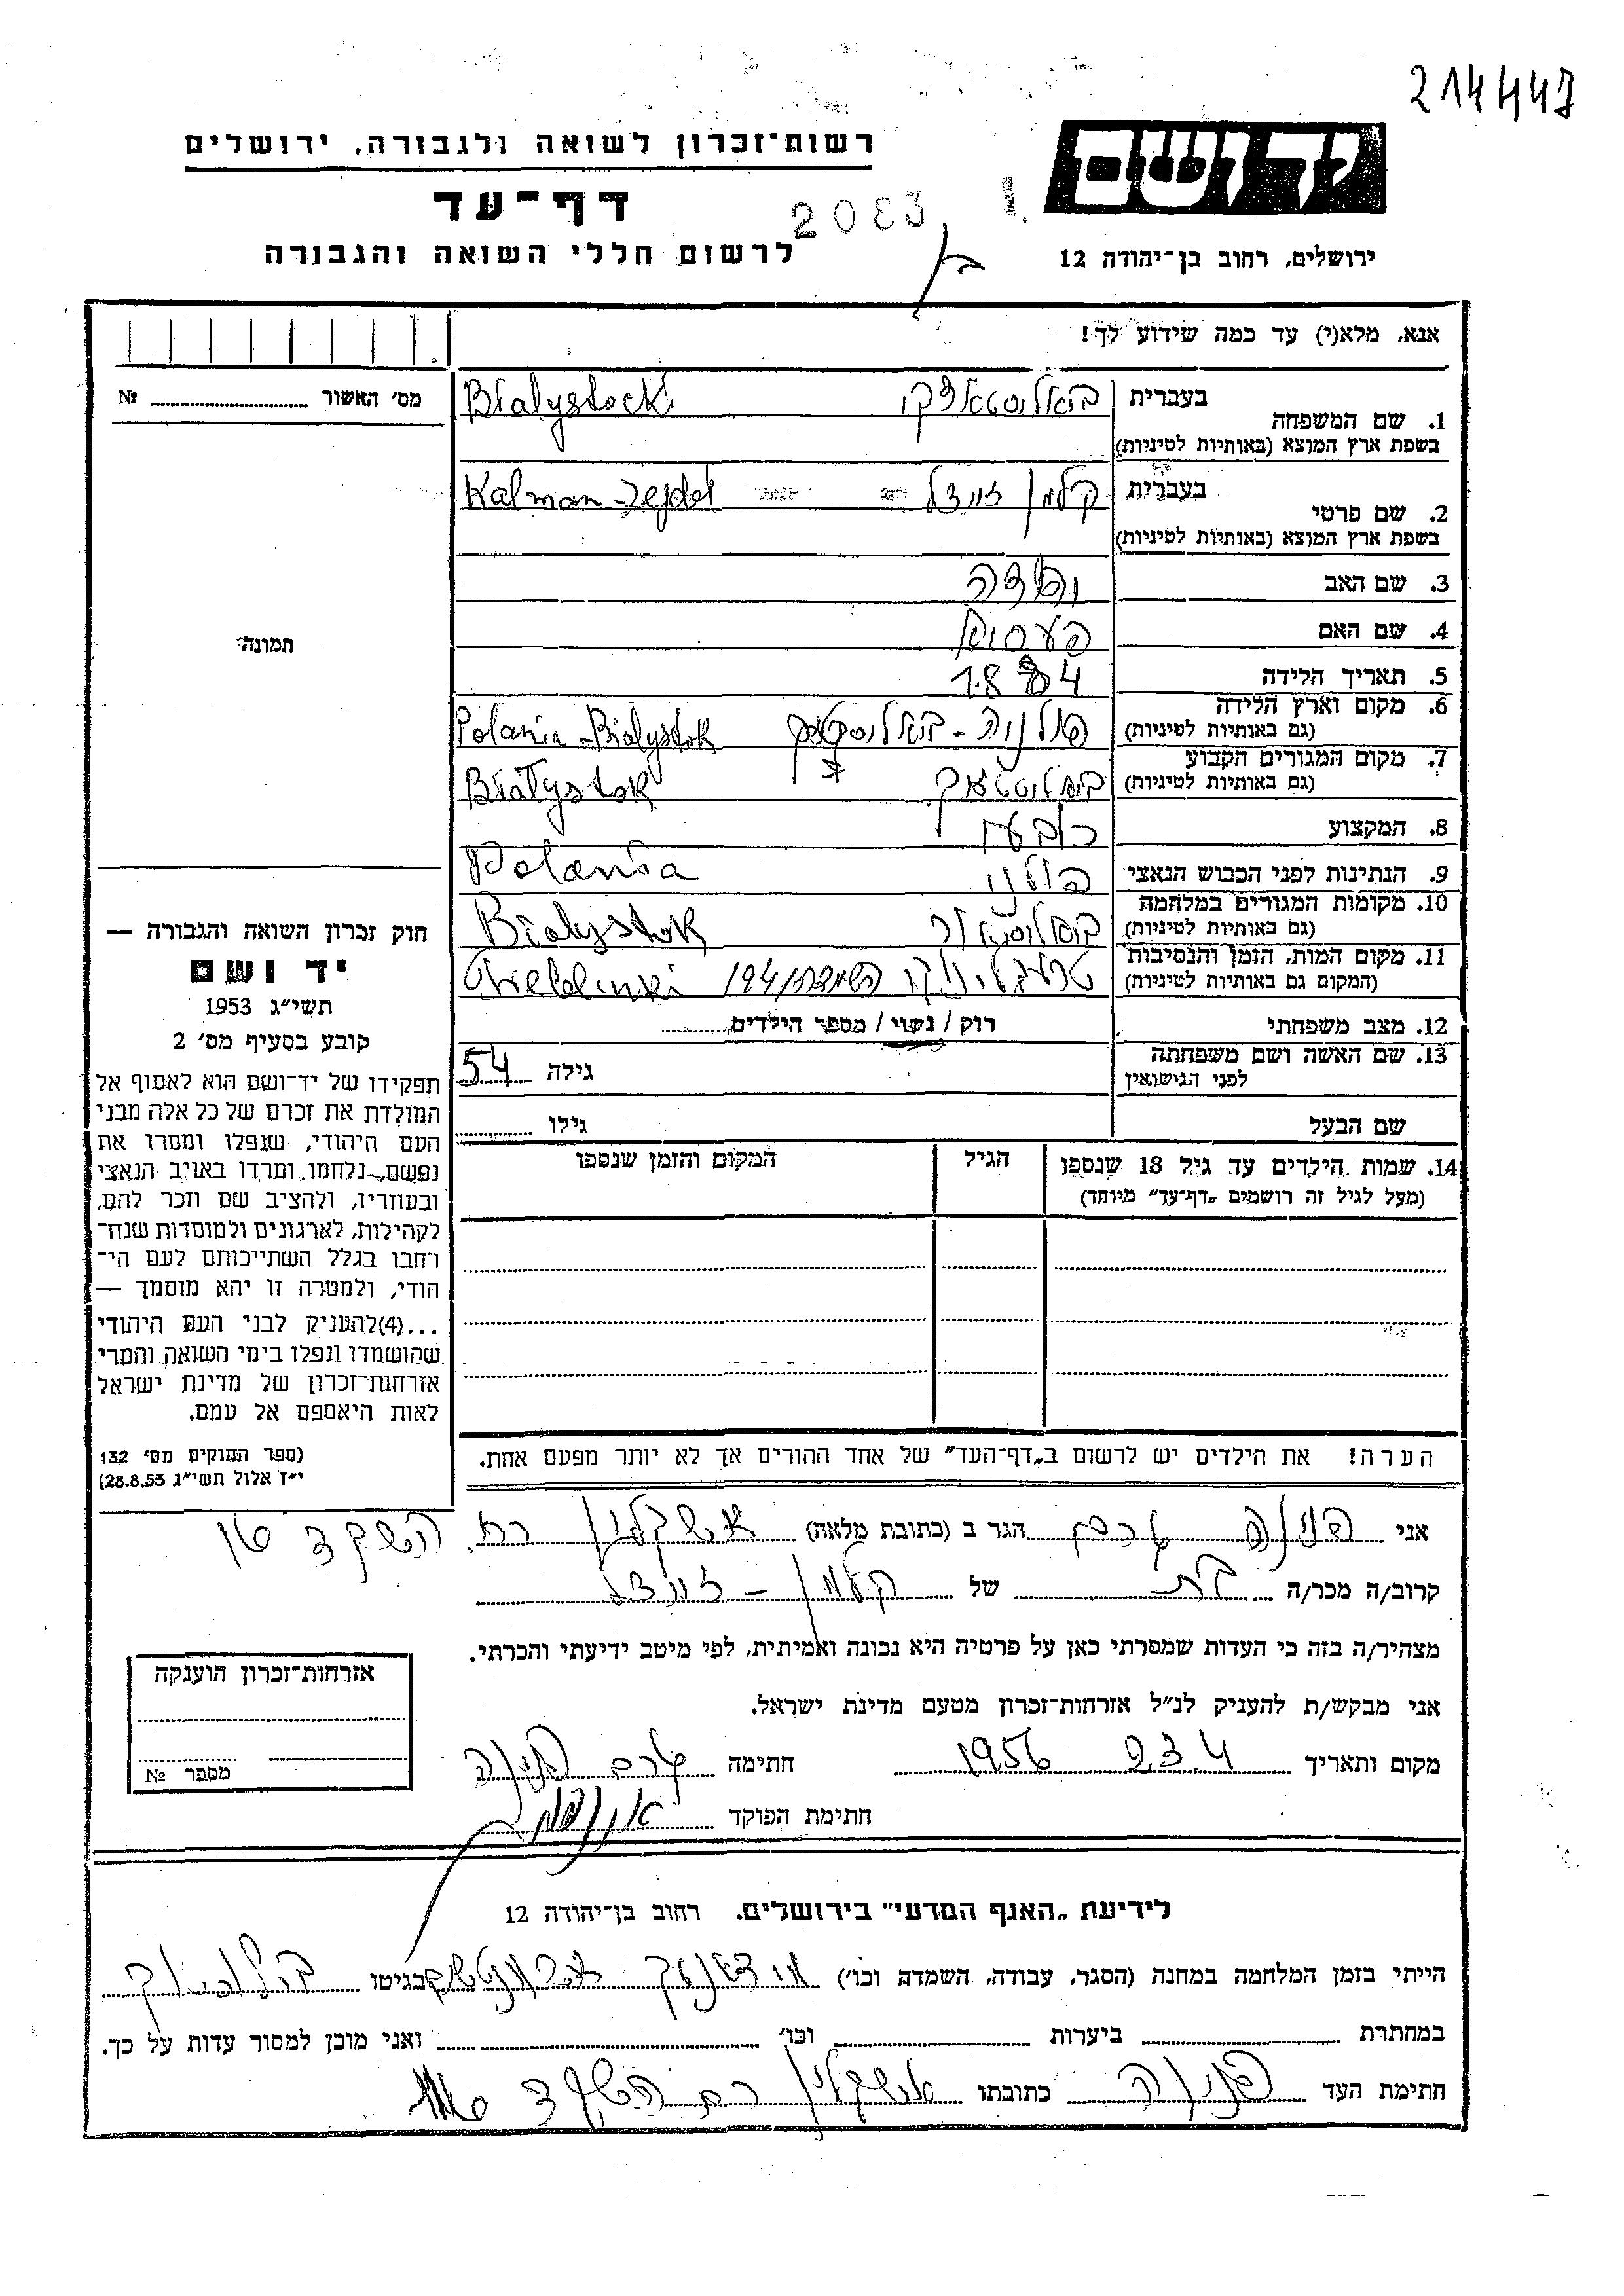 214447
רשות־זכרון לשואה ולגבורה, ירושלים
דף־עד
לרשום חללי השואה והגבורה
2083
ידושם
ירושלים, רחוב בן־יהודה 12
אנא, מלא(י) עד כמה שידוע לך!
מס׳ האשור № 
1. שם המשפחה בעברית ביאליסטאצקי Białystocki
בשפת ארץ המוצא (באותיות לטיניות)
2. שם פרטי בעברית קלמן זיידל Kalman-Zejdel
בשפת ארץ המוצא (באותיות לטיניות)
3. שם האב
4. שם האם
5. תאריך הלידה 1884
6. מקום וארץ הלידה פולניה - ביאליסטוק Polania-Białystok
(גם באותיות לטיניות)
7. מקום המגורים הקבוע ביאליסטאק Białystok
(גם באותיות לטיניות)
8. המקצוע
9. הנתינות לפני הכבוש הנאצי פולני Polania
10. מקומות המגורים במלחמה Białystok
(גם באותיות לטיניות)
11. מקום המות, הזמן והנסיבות
(המקום גם באותיות לטיניות)
12. מצב משפחתי רוק / נשוי / מספר הילדים
13. שם האשה ושם משפחתה לפני הנישואין גילה 54
שם הבעל גילו
14. שמות הילדים עד גיל 18 שנספו הגיל המקום והזמן שנספו
(מעל לגיל זה רושמים „דף־עד״ מיוחד)
תמונה
חוק זכרון השואה והגבורה —
יד ושם
תשי״ג 1953
קובע בסעיף מס׳ 2
תפקידו של יד־ושם הוא לאסוף אל
המולדת את זכרם של כל אלה מבני
העם היהודי, שנפלו ומסרו את
נפשם, נלחמו ומרדו באויב הנאצי
ובעוזריו, ולהציב שם וזכר להם,
לקהילות, לארגונים ולמוסדות שנח־
רבו בגלל השתייכותם לעם הי־
הודי, ולמטרה זו יהא מוסמך —
...(4) להעניק לבני העם היהודי
שהושמדו ונפלו בימי השואה והמרי
אזרחות־זכרון של מדינת ישראל
לאות היאספם אל עמם.
(ספר החוקים מס׳ 132
י״ז אלול תשי״ג 28.8.53)
הערה! את הילדים יש לרשום ב„דף־העד״ של אחד ההורים אך לא יותר מפעם אחת.
אני פנינה הגר ב (כתובת מלאה) אשקלון רח. השקד
קרוב/ה מכר/ה בת של קלמן - זיידל
מצהיר/ה בזה כי העדות שמסרתי כאן על פרטיה היא נכונה ואמיתית, לפי מיטב ידיעתי והכרתי.
אני מבקש/ת להעניק לנ״ל אזרחות־זכרון מטעם מדינת ישראל.
מקום ותאריך 23.4 1956 חתימה פנינה
חתימת הפוקד
אזרחות־זכרון הוענקה
מספר №
לידיעת „האגף המדעי״ בירושלים, רחוב בן־יהודה 12
הייתי בזמן המלחמה במחנה (הסגר, עבודה, השמדה וכו׳) מידאנק בגיטו
במחתרת ביערות וכו׳ ואני מוכן למסור עדות על כך.
חתימת העד פנינה כתובתו אשקלון רח השקד